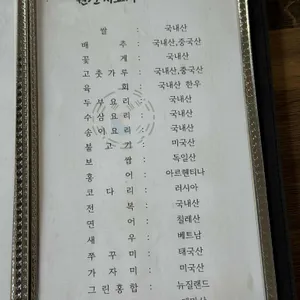 쌀 : 국내산
배추 : 국내산,중국산
꽃게 : 국내산
고춧가루 : 국내산,중국산
육회 : 국내산 한우
두부요리 : 국내산
수삼요리 : 국내산
송이요리 : 국내산
불고기 : 미국산
보쌈 : 독일산
홍어 : 아르헨티나
코다리 : 러시아
전복 : 국내산
연어 : 칠레산
새우 : 베트남
쭈꾸미 : 태국산
가자미 : 미국산
그린홍합 : 뉴질랜드